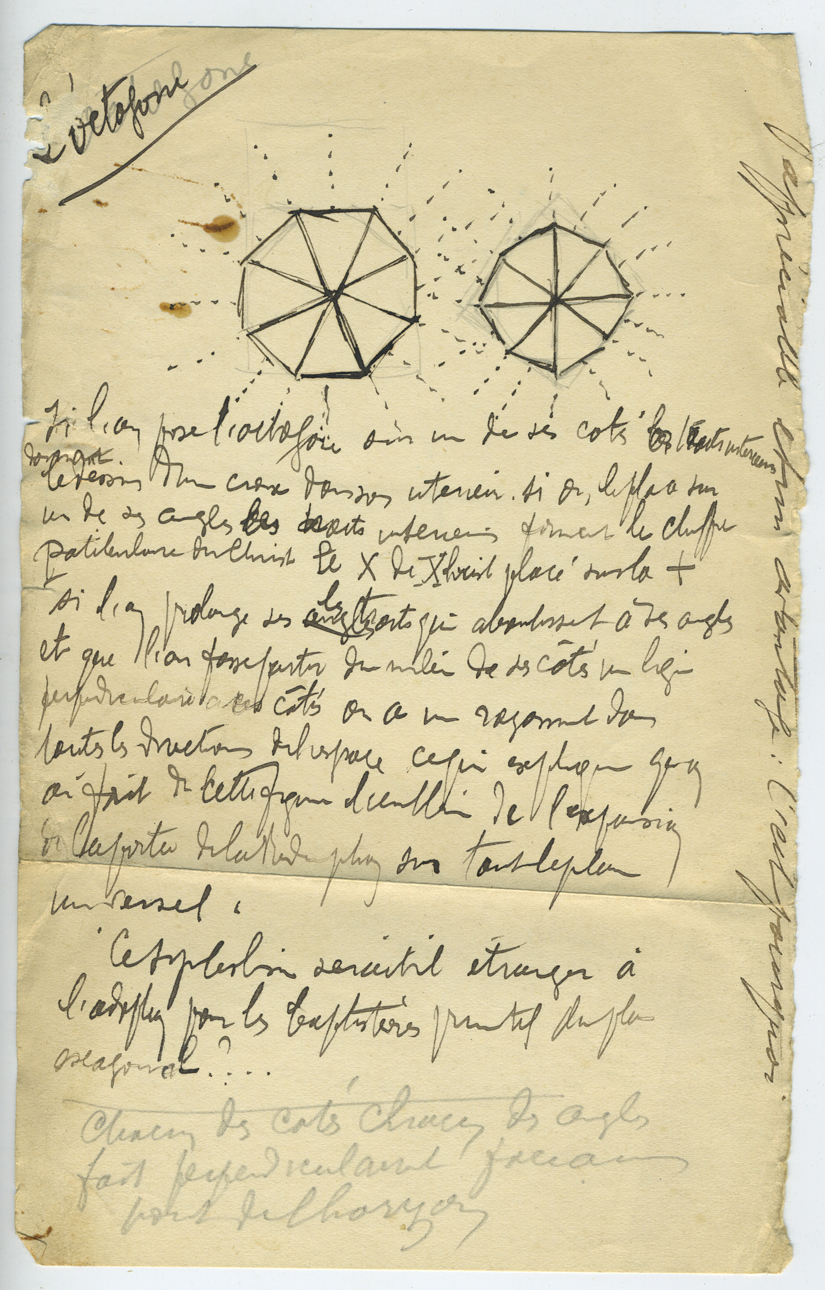 L'octogone
Si l'on pose l'octogone sur un de ses cotés les traits interieurs
donnent
le dessin d'un croix dans son interieur. si on le place sur
un de ses angles les traits interieurs forment le chiffre
patibulaire du Christ le X de Xhrist placé sur la +
si l'on prolonge ses les traits qui aboutissent à ses angles
et que l'on fasse partir du milieu de ses côtés un lign
perpendiculaire a ces côtés on a un rayonnement dans
toutes les directions de l'espace ce qui explique qu'on
ai fait de cette figure l'emblème de l'expansion
de la portée de la Redemption sur tout le plan
universel.
Ce symbolism serait il étranger à
l'adoption pour les baptistères primitif du plan
octogonal ?....
Chacun des cotés Chacun des angles
fait perpendiculairement face a un
point de l'horizon
arbitrage : c'est pourquoi